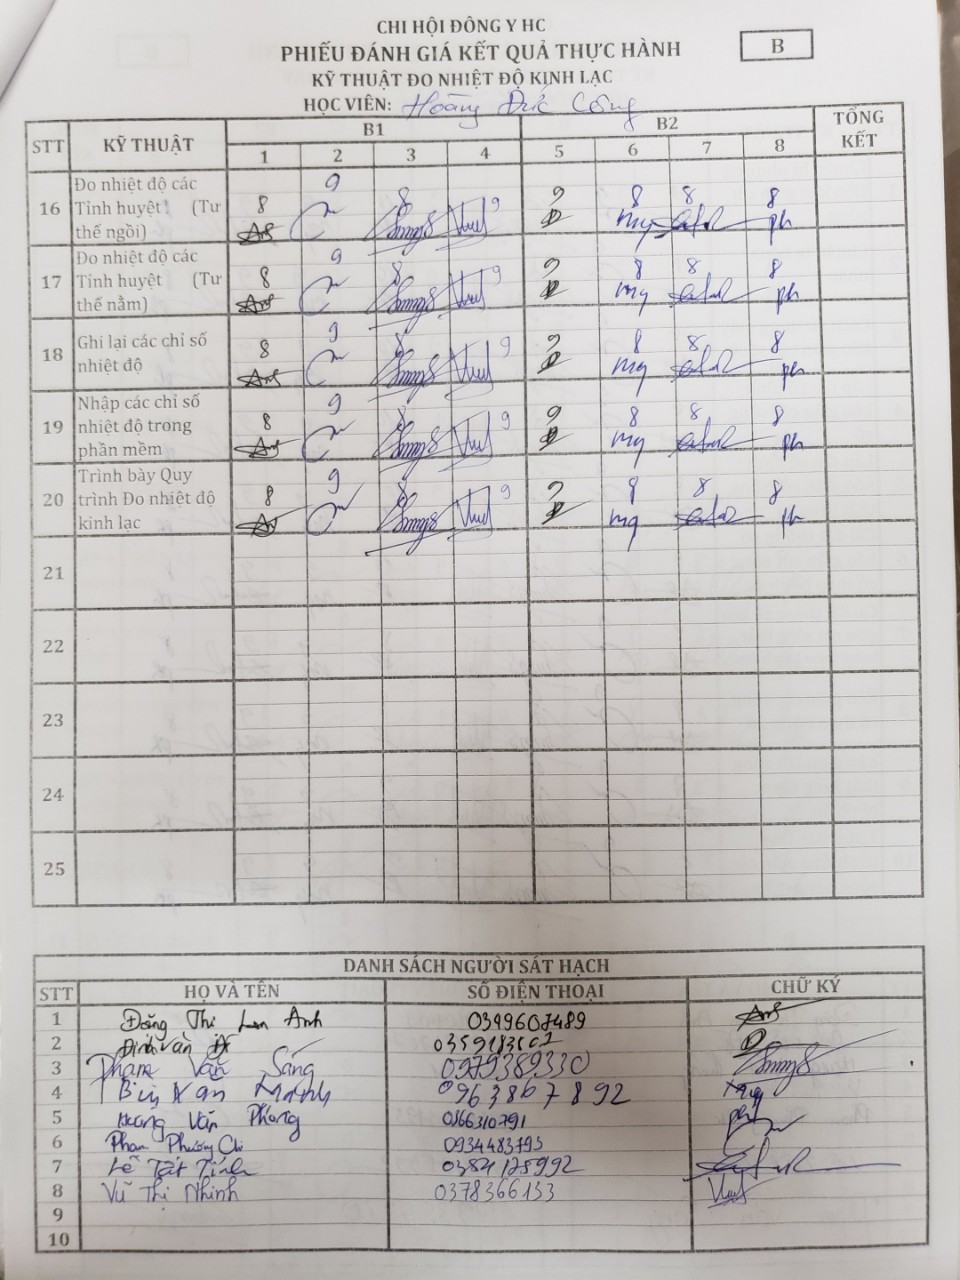 CHI HỘI ĐÔNG Y HC
PHIẾU ĐÁNH GIÁ KẾT QUẢ THỰC HÀNH
B
KỸ THUẬT ĐO NHIỆT ĐỘ KINH LẠC
HỌC VIÊN: Hoàng Đức Công
STT KỸ THUẬT B1 B2 TỔNG KẾT
1 2 3 4 5 6 7 8
16 Đo nhiệt độ các Tỉnh huyệt (Tư thế ngồi) 8 9 8 9 9 8 8 8
17 Đo nhiệt độ các Tỉnh huyệt (Tư thế nằm) 8 9 8 9 9 8 8 8
18 Ghi lại các chỉ số nhiệt độ 8 9 8 9 9 8 8 8
19 Nhập các chỉ số nhiệt độ trong phần mềm 8 9 8 9 9 8 8 8
20 Trình bày Quy trình Đo nhiệt độ kinh lạc 8 9 8 9 9 8 8 8
21
22
23
24
25
DANH SÁCH NGƯỜI SÁT HẠCH
STT HỌ VÀ TÊN SỐ ĐIỆN THOẠI CHỮ KÝ
1 Đặng Thị Lan Anh 0349607489
2 Đinh Văn
3 Phạm Văn Sáng 0979389330
4 Bùi Văn Mạnh 0963867892
5 Hoàng Văn Phong 0366310791
6 Phạm Phương Chi 0934483793
7 Lê Tất Tính 0384128992
8 Vũ Thị Nhinh 0378366133
9
10